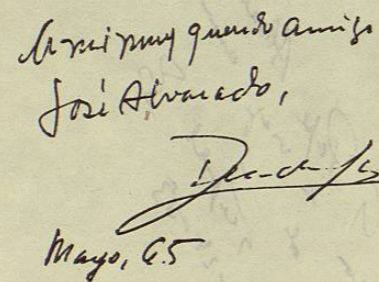 A mi muy querido amigo
José Alvarado,
Mayo, 65